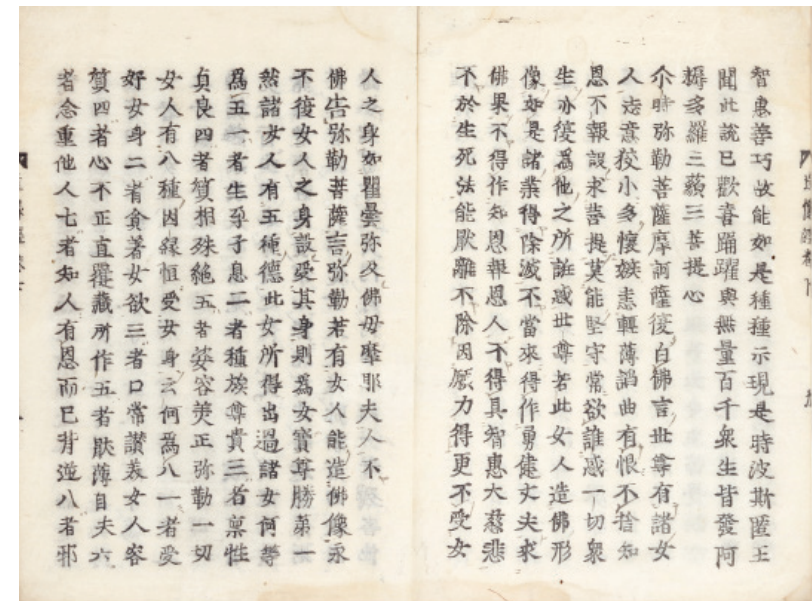 智惠善巧故能如是種種示現是時波斯匿王
聞此說已歡喜踊躍與無量百千衆生皆發阿
耨多羅三藐三菩提心
尒時弥勒菩薩摩訶薩復白佛言世尊有諸女
人志意狹小多懷嫉恚輕薄諂曲有恨不捨知
恩不報設求菩提莫能堅守常欲誰惑一切衆
生亦復爲他之所誑惑世尊若此女人造佛形
像如是諸業得除滅不當來得作勇健丈夫求
佛果不得作知恩報恩人不得具智惠大慈悲
不於生死法能厭離不除因願力得更不受女
人之身如瞿曇弥及佛母摩耶夫人不
佛告弥勒菩薩言弥勒若有女人能造佛像永
不復女人之身設受其身則爲女寶尊勝第一
然諸女人有五種德此女所得出過諸女何等
爲五一者生孕子息二者種族尊貴三者稟性
貞良四者質相殊絕五者姿容美正弥勒一切
女人有八種因緣恒受女身云何爲八一者愛
好女身二者貪著女欲三者口常讃美女人容
質四者心不正直覆藏所作五者厭薄自夫六
者念重他人七者知人有恩而已背逆八者邪